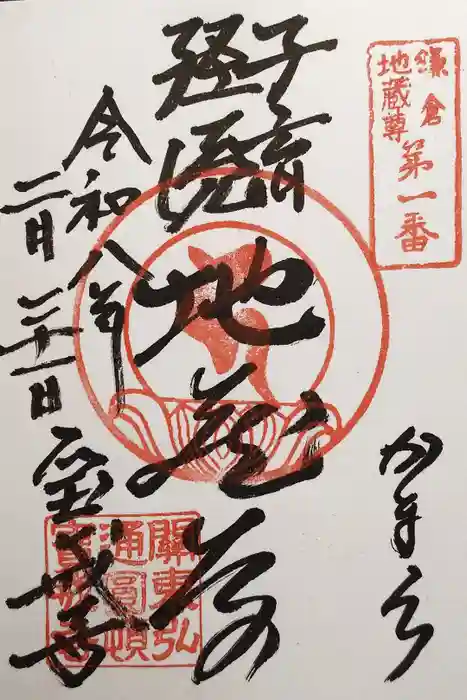 鎌倉
地蔵尊
第一番
かまくら
子育
経読
地蔵尊
令和八年
二月二十一日
宝戒寺
關東弘
通圓頓
寶戒寺